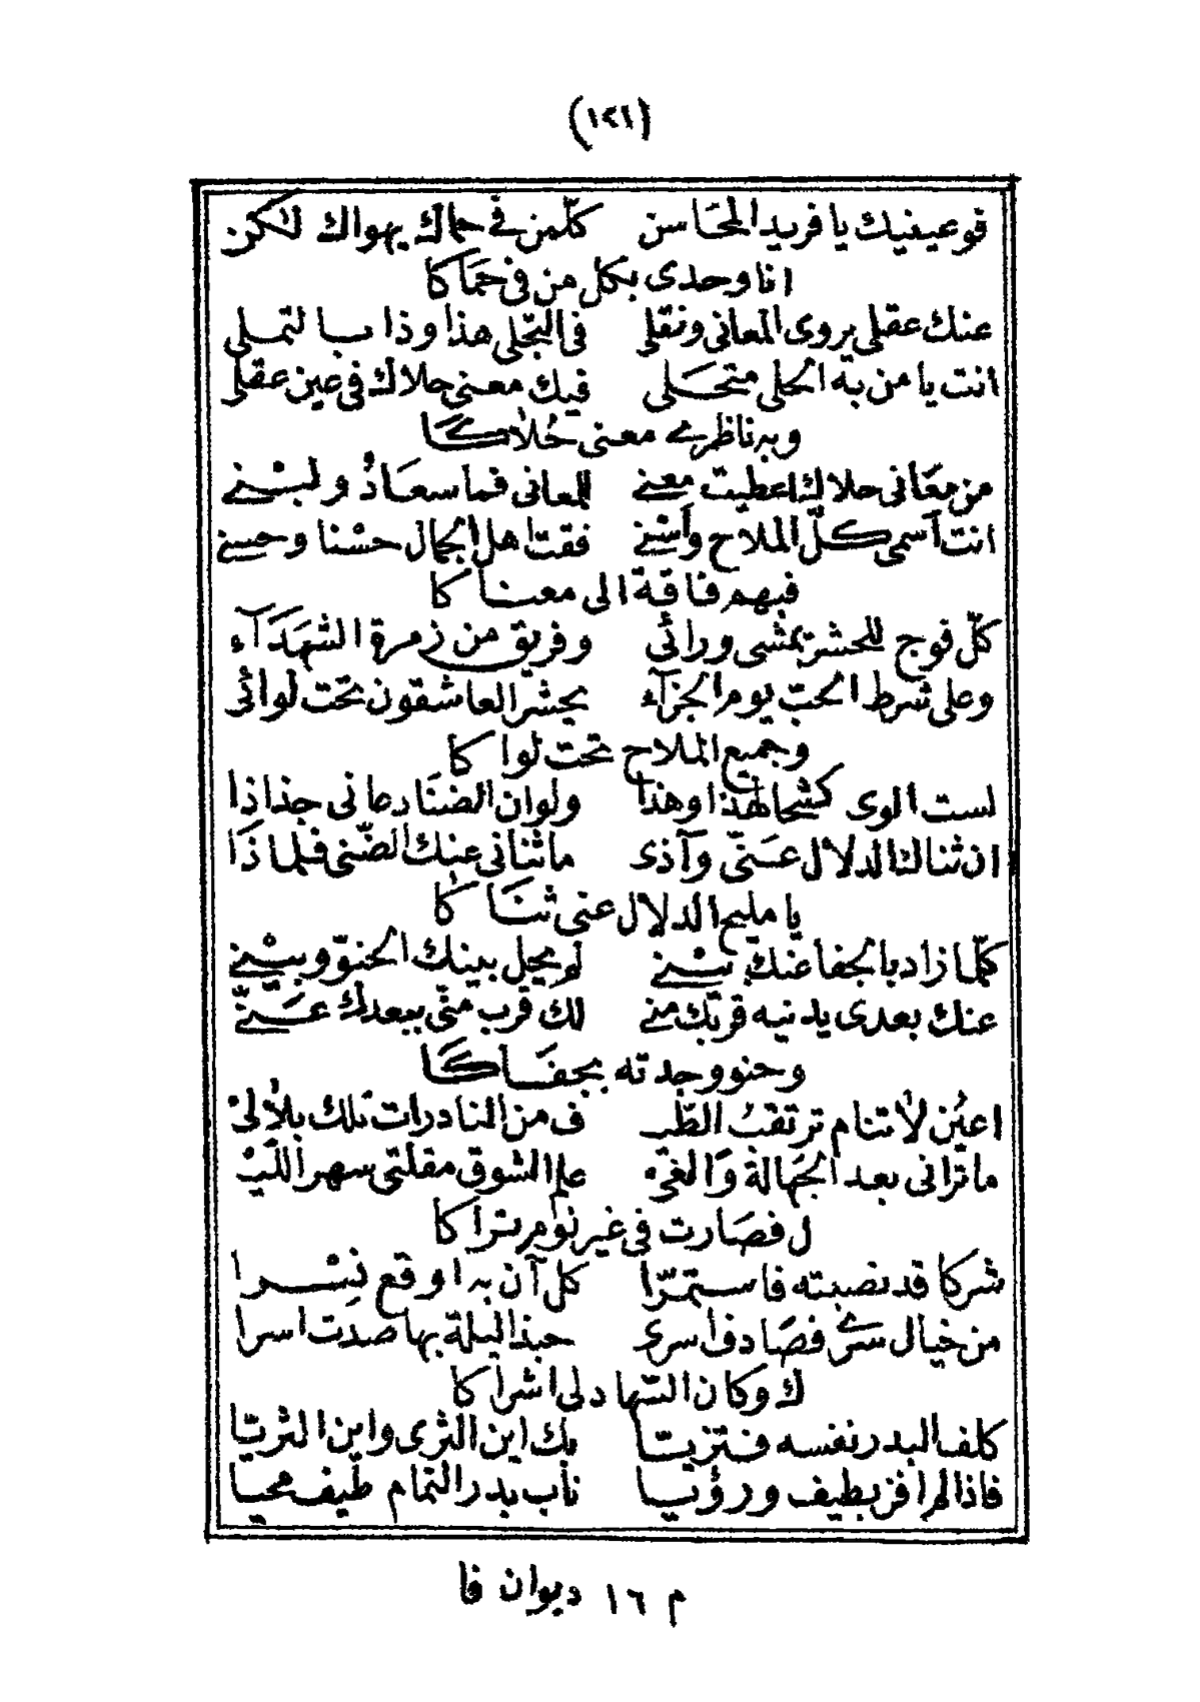 (١٢١)
فوعينيك يا فريد المحَاسن كلّمن في حماك يهواك لٰكن
انا وحدى بكل من فى حمَاكا
عنك عقلى يروى المعانى ونقلى فى التجّلى هذا وذا بالتملى
انت يا من به الحلى متحَلى فيك معنى حلاك فى عين عقلى
وبه ناظرى معنى حُلاكَا
من معَانى حلاك اعطيت معنى للمعانى فما سعَادُ ولبْنى
انت آسمى كلّ الملاح وآسْنى فقت اهل الجمال حسْنا وحسنى
فبهم فاقة الى معناكا
كلّ فوج للحشر يمشى ورائى وفريق من زمرة الشهَدَآء
وعلى شرط الحبّ يوم الجزآء يحشر العاشقون تحت لوائى
وجميع الملاح تحت لواكا
لست الوى كشحا لهذا وهذا ولو ان الضنَا دعانى جذاذا
ان ثناك الدلال عَنّى وآذى ما ثنانى عنك الضّنى فلماذَا
يا مليح الدلال عنى ثنَاكا
كلّما زاد بالجفا عنك بيْنى لم يحل بينك الحنوّ وبيْنى
عنك بعدى يدنيه قربك منى لك قرب منّى ببعدك عَنّى
وحنو وجدته بجفَاكَا
اعيُن لا تنام ترتقبُ الطّب ف من النادرات تلك بلالىْ
ما ترانى بعد الجهَالة وَالغىّ علم الشوق مقلتى سهر اللّيْ
ل فصَارت فى غير نوم تراكا
شركا قد نصبته فاستمرّا كل آن به اوقع نسْرا
من خيال سرى فصَادف اسرى حبذا ليلة بها صدت اسرا
ك وكان السّهاد لى اشراكا
كلف البدر نفسه فتزيّا بك اين الثرى واين الثريّا
فاذا لم افز بطيف ورؤيا ناب بدر التمام طيف محيّا
م ١٦ ديوان فا